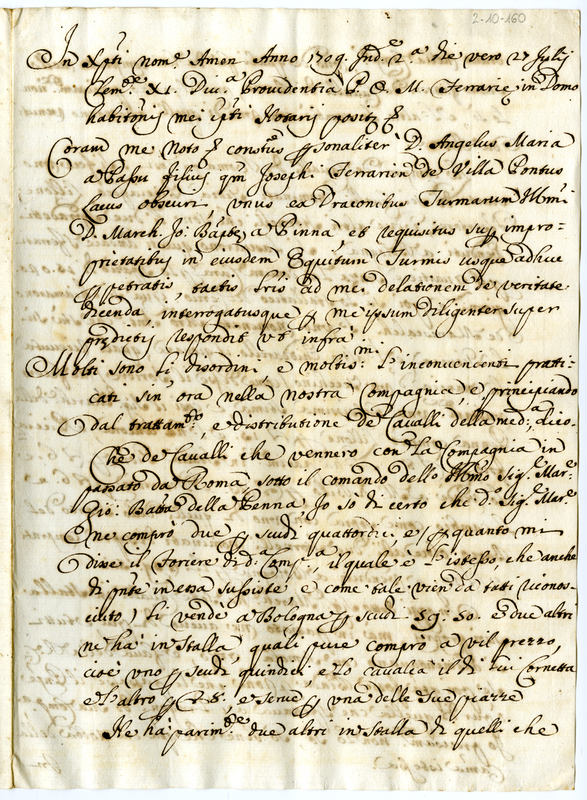 2-10-160
In Xpti nom.e Amen Anno 1709. Ind.e 2.a die vero 27 Julij
Clem.e XI. Div.a Providentia P. O. M. Ferrarie in Domo
habitonis mei Notarij posit
Coram me Noto constus psonaliter D. Angelus Maria
a Passu filius qm Joseph Ferrarien de Villa Pontus
Lacus obscuri unus ex Draconibus Turmarum Illmi
D. March. Jo: Bapte a Pinna, et requisitus sup impro=
prietatibus in eiusdem Equitum Turmis usque adhuc
ppetratis, tactis ad mei delationem de veritate
dicenda interrogatusque p me ipsum diligenter super
predictis respondit ut infra
Molti sono li disordini, e moltis.mi l'inconvenienti pratti=
cati sin' ora nella nostra Compagnia, e principiando
dal trattam.to, e distributione de Cavalli della med.a dico=
Che de Cavalli che vennero con la Compagnia in
passato da Roma sotto il comando dello Illmo Sig.r Mar.e
Gio: Batta della Penna, Io sò di certo che d.o Sig.r Mar.e
ne comprò due p scudi quattordici, e / p quanto mi
disse il foriere di d.a Comp.a, il quale è l'istesso, che anche
di pnte in essa sussiste, e come tale vien da tutti ricono=
sciuto / li vendè a Bologna p scudi 59:50. e due altri
ne hà in stalla, quali pure comprò a vil prezzo,
cioè uno p scudi quindici e lo cavalca il di lui Cornetta
e l'altro p e serve p una delle sue piazze
Ne hà parim.te due altri in stalla di quelli che